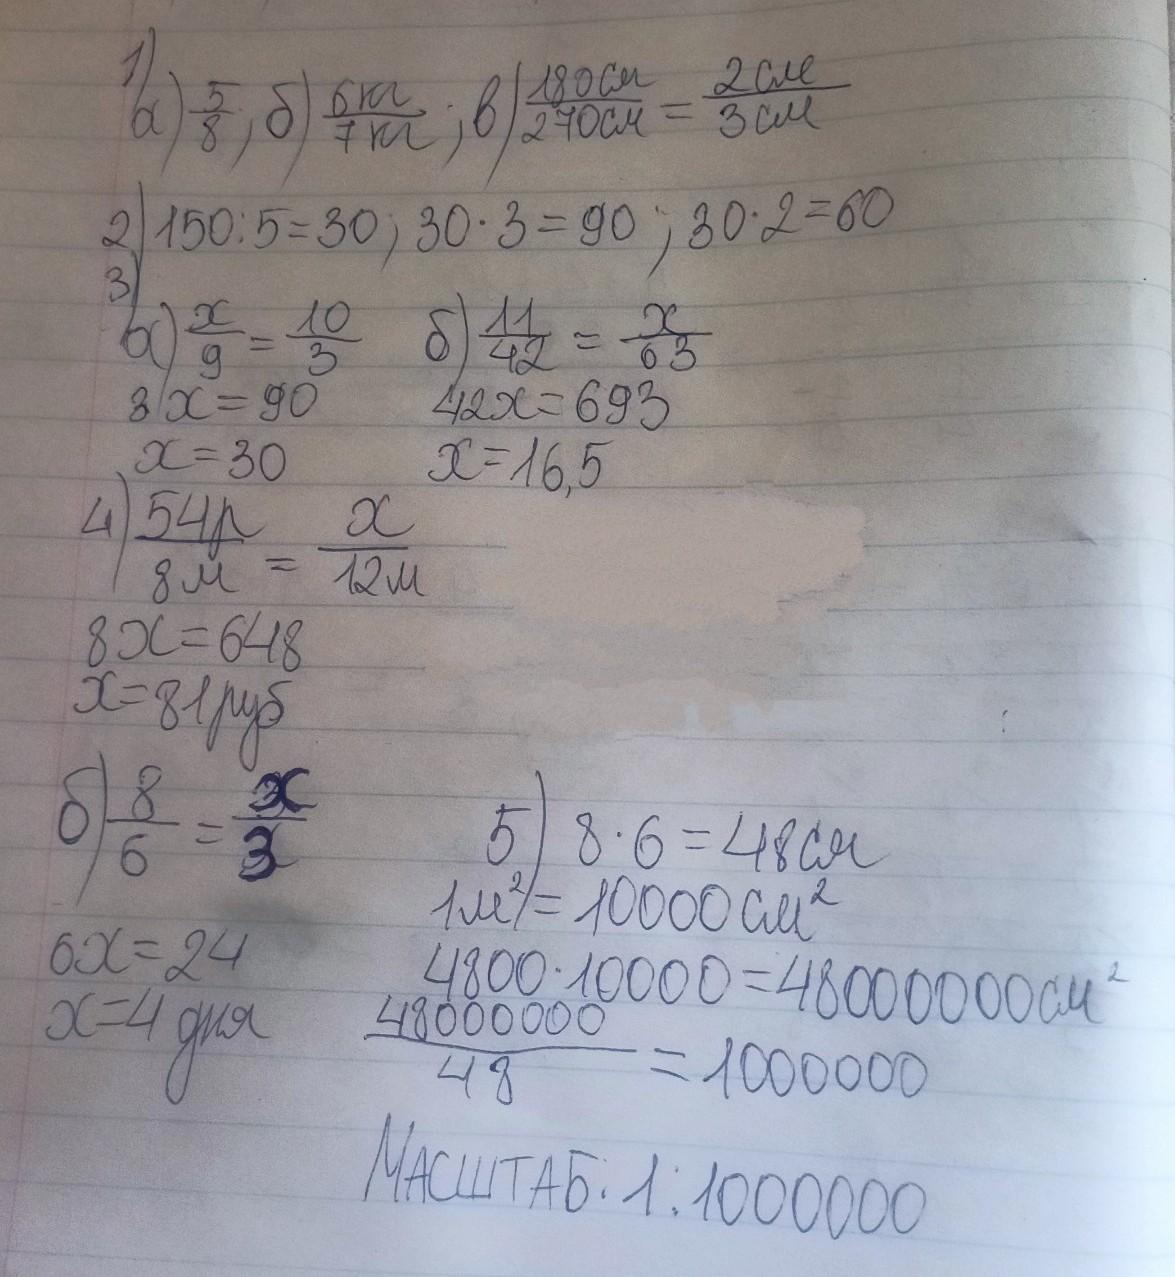 1)
а) 5/8; б) 6кг/7кг; в) 180см/270см = 2см/3см
2) 150:5=30; 30·3=90; 30·2=60
3)
а) x/9 = 10/3 б) 11/42 = x/63
3x=90 42x=693
x=30 x=16,5
4) 54р/8м = x/12м
8x=648
x=81руб
б) 8/6 = x/3
6x=24
x=4 дня
5) 8·6=48см
1м²=10000см²
4800·10000=48000000см²
48000000/48 = 1000000
МАСШТАБ: 1:1000000